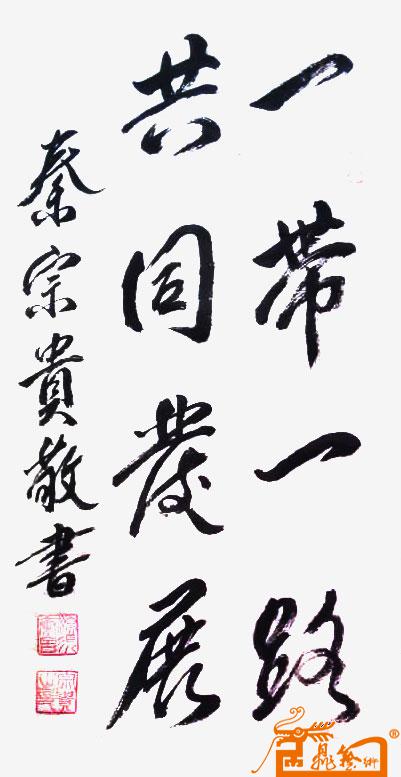 一帶一路
共同發展
秦宗貴敬書